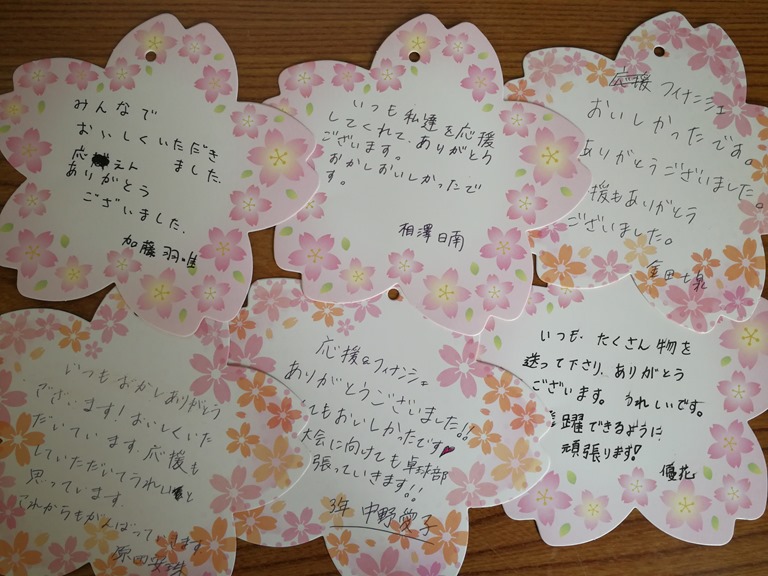 みんなで
おいしくいただき
ました。
応えん
ありがとう
ございました。
加藤 羽唯
いつも私達を応援
してくれて、ありがとう
ございます。
おかしおいしかったで
す。
相澤日南
応援 フィナンシェ
おいしかったです。
ありがとうございました。
援もありがとう
ございました。
金田
いつもおかしありがとう
ございます!おいしくいた
だいています。応援も
していただいてうれしいと
思っています。
これからもがんばっていきます
原田
応援&フィナンシェ
ありがとうございました!!
てもおいしかったです
大会に向けても卓球部
張っていきます!!
3年 中野愛子
いつも たくさん物を
送って下さり、ありがとう
ございます。うれしいです。
躍できるように
頑張ります!
優花